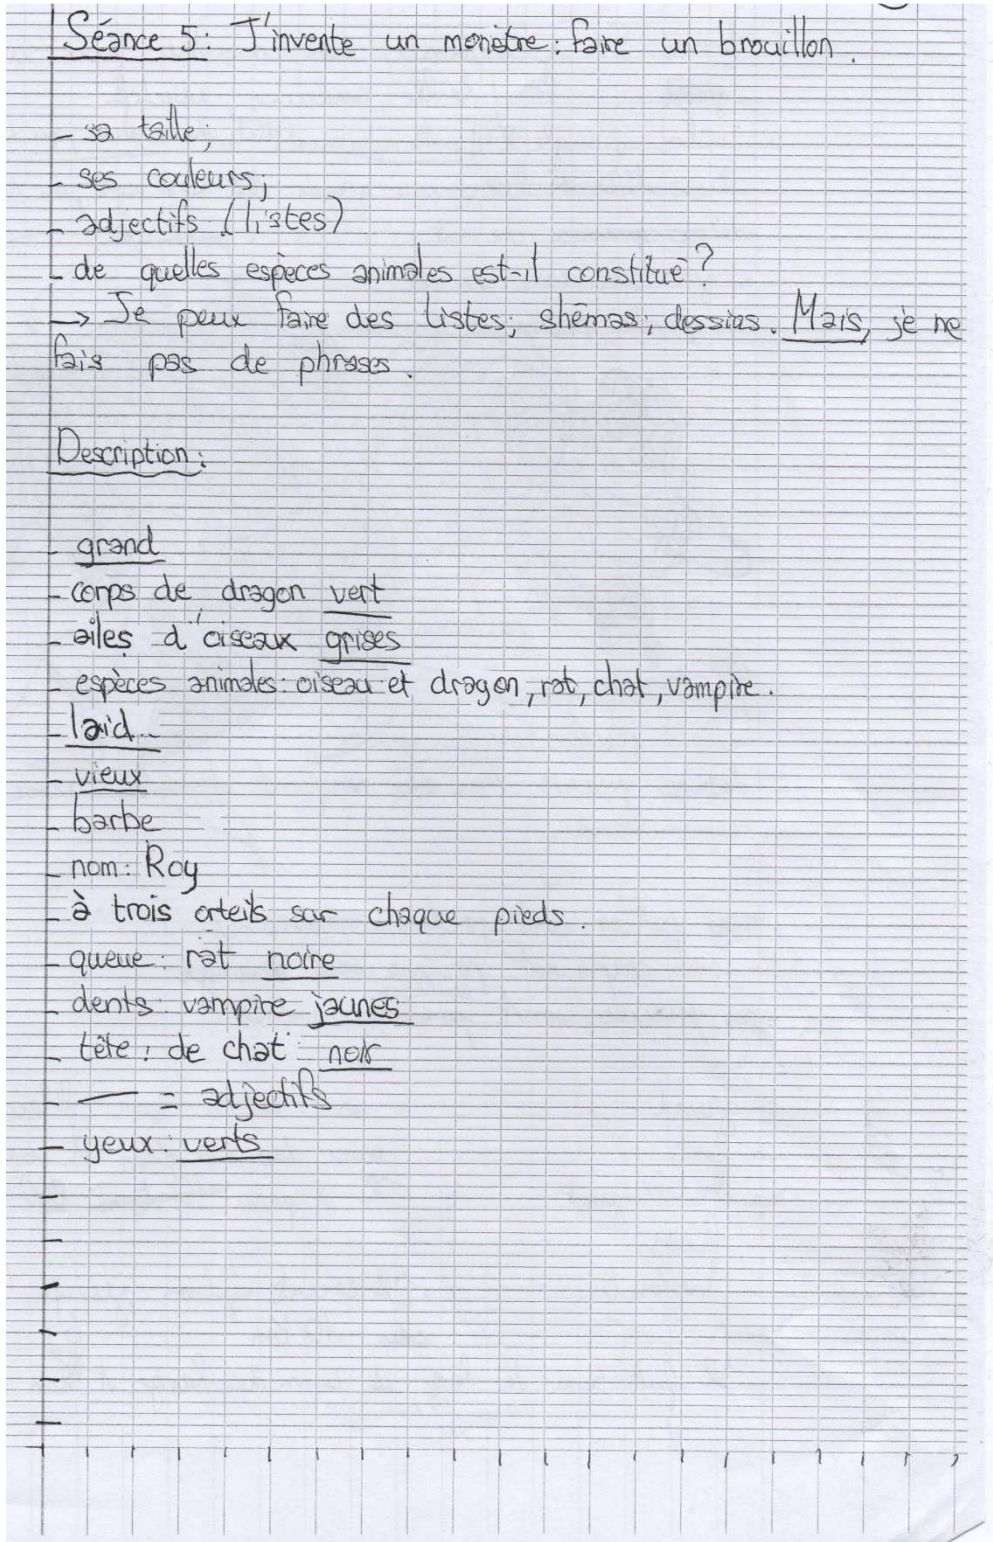 Séance 5: J'invente un monstre: faire un brouillon.
- sa taille;
- ses couleurs;
- adjectifs (listes)
- de quelles espèces animales est-il constitué?
-> Je peux faire des listes, shémas, dessins. Mais, je ne
fais pas de phrases.
Description:
- grand
- corps de dragon vert
- ailes d'oiseaux grises
- espèces animales: oiseau et dragon, rat, chat, vampire.
- laid
- vieux
- barbe
- nom: Roy
- à trois orteils sur chaque pieds.
- queue: rat noire
- dents: vampire jaunes
- tête: de chat noir
- — = adjectifs
- yeux: verts